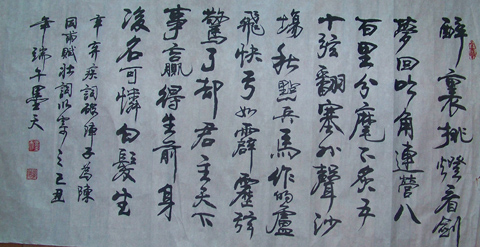 醉裏挑燈看劍
夢回吹角連營八
百里分麾下炙五
十弦翻塞外聲沙
場秋點兵馬作的盧
飛快弓如霹靂弦
驚了却君王天下
事贏得生前身
後名可憐白髮生
辛弃疾詞破陣子為陳
同甫賦壯詞以寄之己丑
年端午墨天